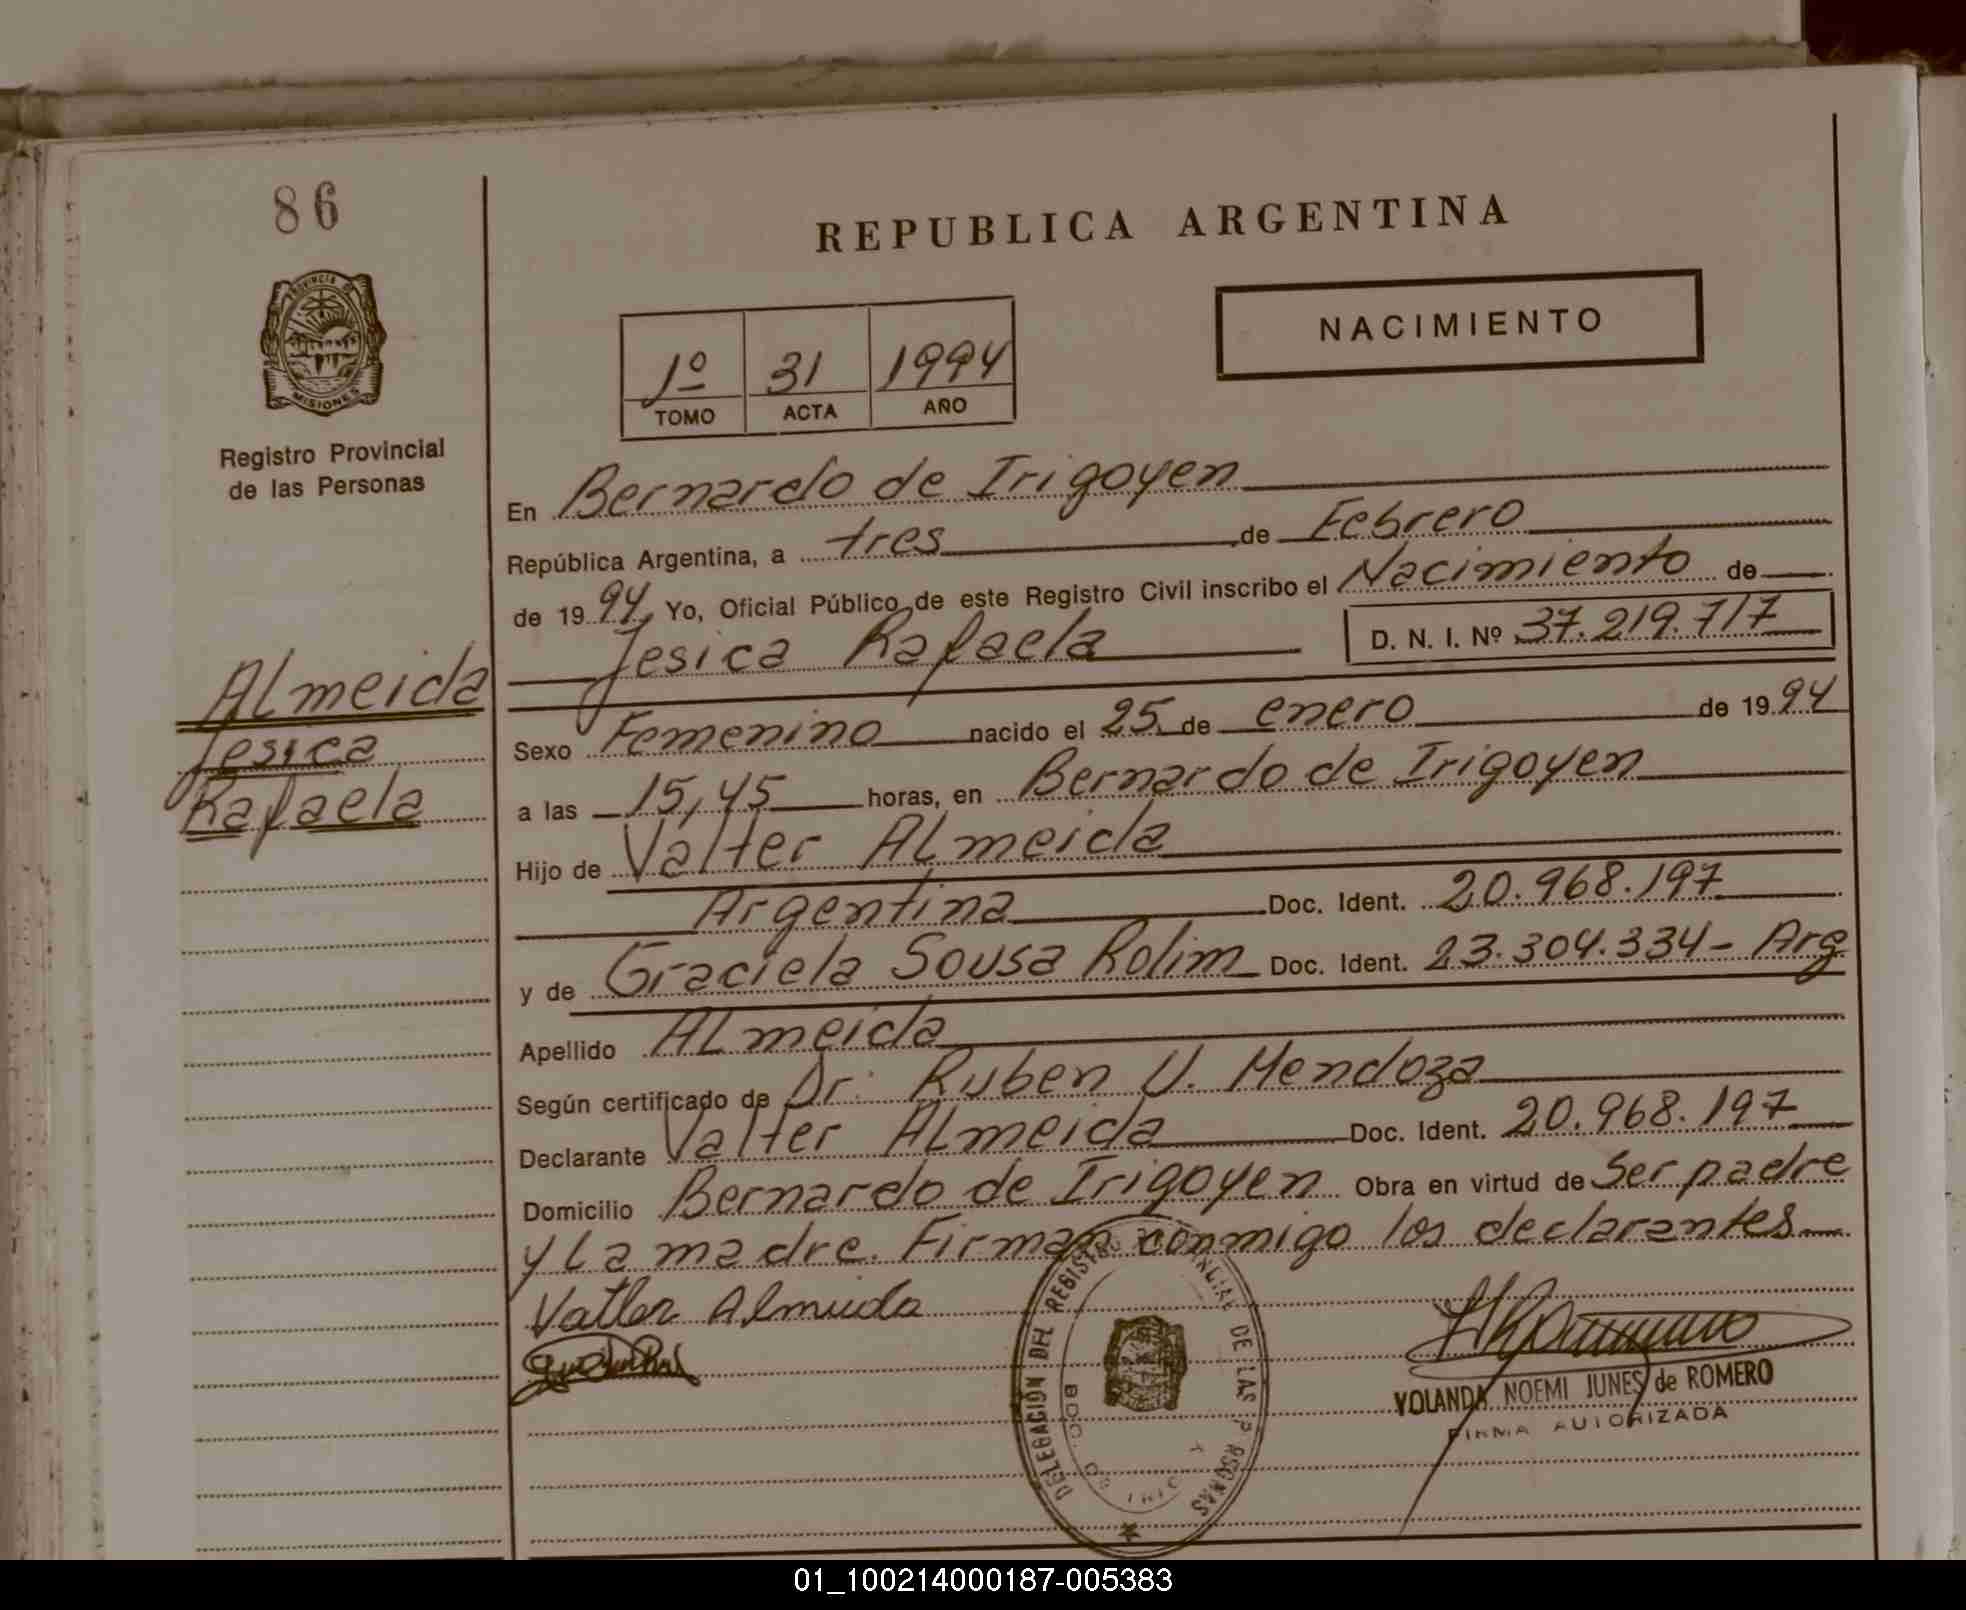 86
REPUBLICA ARGENTINA
NACIMIENTO
1º 31 1994
TOMO ACTA AÑO
PROVINCIA DE
MISIONES
Registro Provincial
de las Personas
En Bernardo de Irigoyen
República Argentina, a tres de Febrero
de 1994, Yo, Oficial Público de este Registro Civil inscribo el Nacimiento de
Jesica Rafaela D. N. I. Nº 37.219.717
Almeida
Jesica
Rafaela
Sexo Femenino nacido el 25 de enero de 1994
a las 15,45 horas, en Bernardo de Irigoyen
Hijo de Valter Almeida
Argentina Doc. Ident. 20.968.197
y de Graciela Sousa Rolim Doc. Ident. 23.304.334 - Arg
Apellido Almeida
Según certificado de Dr. Ruben U. Mendoza
Declarante Valter Almeida Doc. Ident. 20.968.197
Domicilio Bernardo de Irigoyen Obra en virtud de Ser padre
y La madre. Firman conmigo los declarantes
Valter Almeida
DELEGACIÓN DEL REGISTRO PROVINCIAL DE LAS PERSONAS
YOLANDA NOEMI JUNES de ROMERO
FIRMA AUTORIZADA
01_100214000187-005383